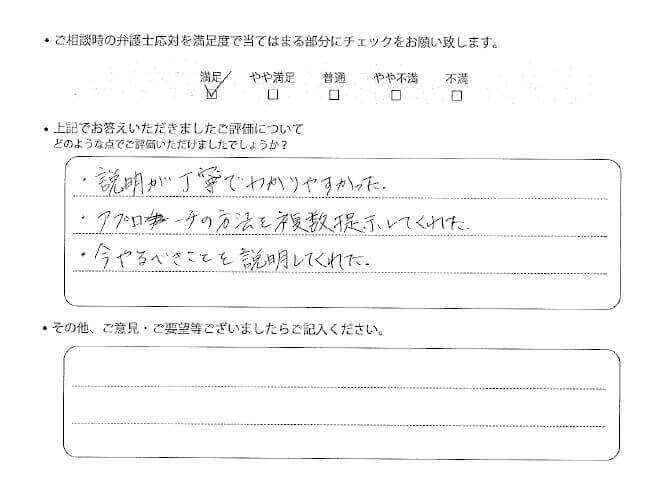 ・ご相談時の弁護士応対を満足度で当てはまる部分にチェックをお願い致します。
満足 やや満足 普通 やや不満 不満
☑ □ □ □ □
・上記でお答えいただきましたご評価について
どのような点でご評価いただけましたでしょうか？
・説明が丁寧でわかりやすかった。
・アプローチの方法を複数提示してくれた.
・今やるべきことを説明してくれた。
・その他、ご意見・ご要望等ございましたらご記入ください。